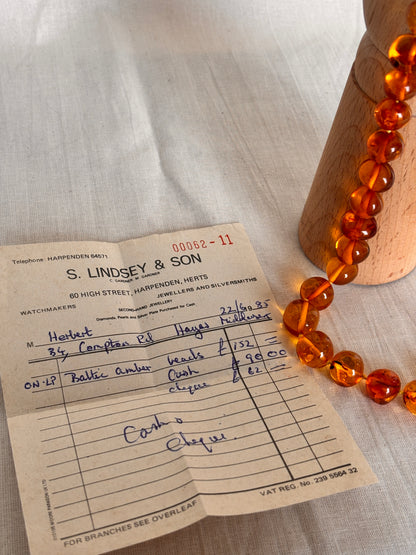 Telephone: HARPENDEN 64571
00062 - 11
S. LINDSEY & SON
C. GARDNER M. GARDNER
60 HIGH STREET, HARPENDEN, HERTS
WATCHMAKERS JEWELLERS AND SILVERSMITHS
SECOND-HAND JEWELLERY
Diamonds, Pearls and Silver Plate Purchased for Cash.
M Herbert
34, Compton Rd Hayes Middlesex
ON-LP Baltic Amber beads £ 152 =
Cash £ 90 00
cheque £ 62 =
Cash &
cheque.
FOR BRANCHES SEE OVERLEAF
VAT REG. No. 239 5564 32